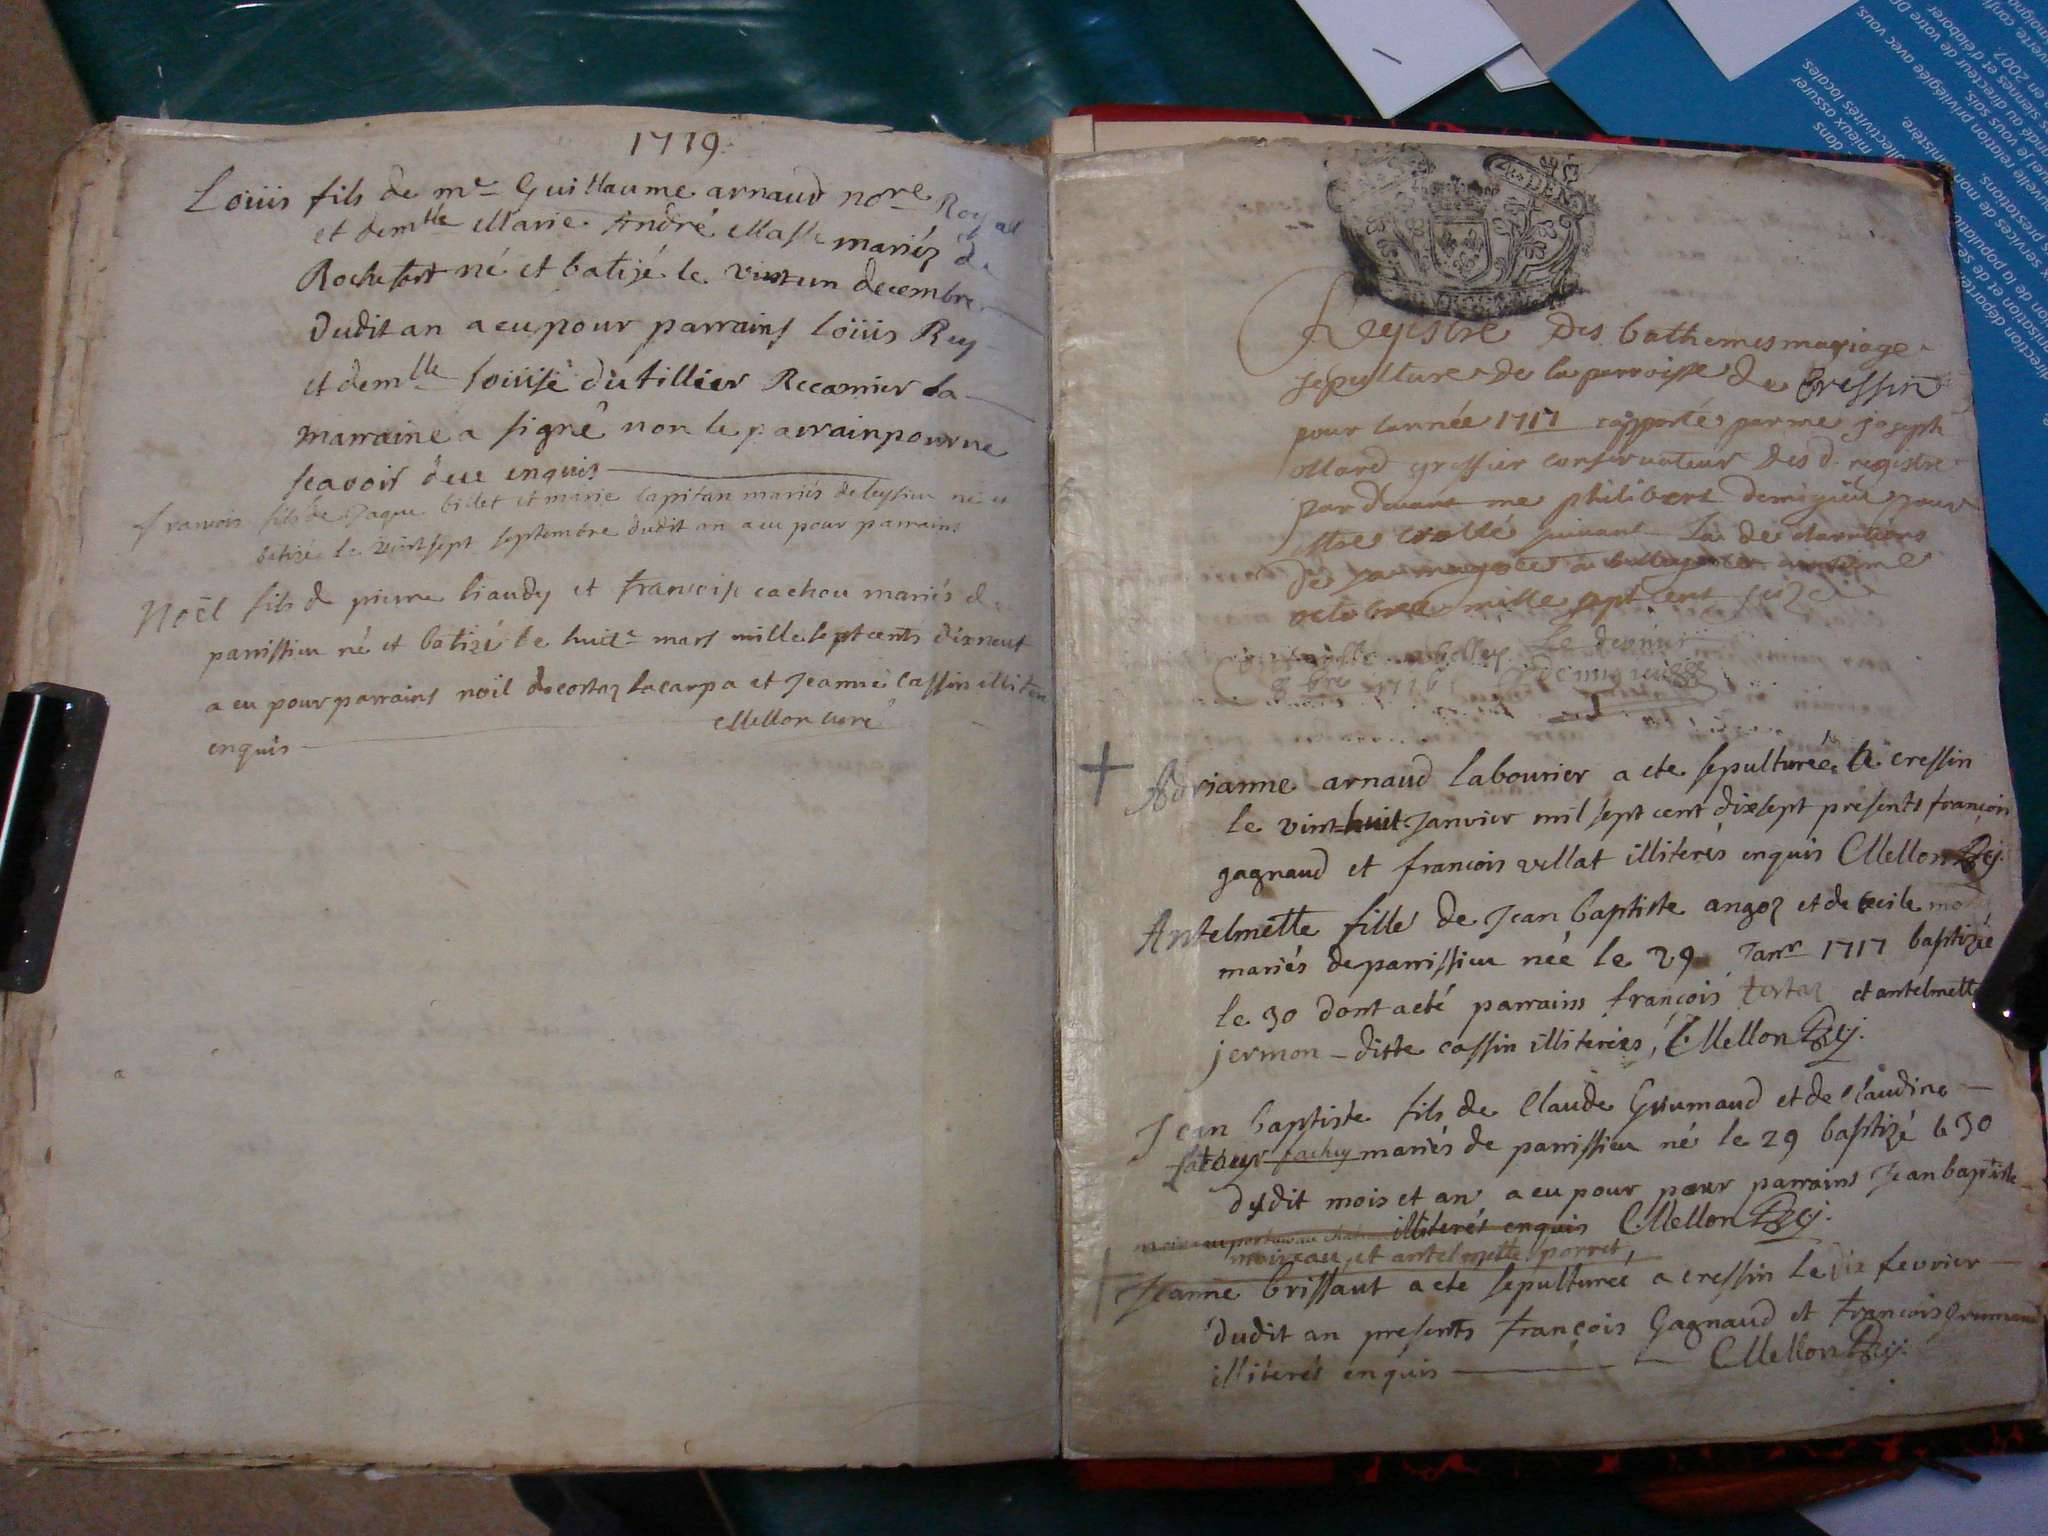 1719
Loüis fils de me Guillaume arnaud nore Royal
et demlle Marie André Masse mariés de
Rochefort né et batizé le vint un decembre
dudit an a eu pour parrains Loüis Rey
et demlle Loüise dutillier Recamier la
marraine a signé non le parrain pour ne
scavoir de ce enquis
francois fils de Jaque bidet et marie Capitan mariés de leyssieu né et
batizé le vint sept septembre dudit an a eu pour parrains
Noël fils de pierre liaudy et francoise cachou mariés de
parrissieu né et batizé le huite mars mille sept cents dixneuf
a eu pour parrains noël decortaz lacarpa et Jeanne Cassin illiterés
enquis Mellon curé
Registre des bathemes mariage
sepulture de la parroisse de Cressin
pour lannée 1717 rapporté par me Joseph
greffier conservateur des d. registre
par devant me philibert demigieu pour
estre cotté suivant La declarations
de sa majesté a belley
octobre mille sept cent seize
belley Le dernier
8bre 1716 Demigieu
Adrianne arnaud labourier a eté sepulturée a cressin
le vint huit Janvier mil sept cent dixsept presents françois
gagnaud et francois vellat illiterés enquis CMellon
Antelmette fille de Jean baptiste angoz et de cecile
mariés de parrissieu née le 29 Janr 1717 baptizée
le 30 dont acté parrains françois tortaz et antelmette
jermon ditte cassin illiterées, CMellon
Jean baptiste fils de Claude Grumaud et de Claudine
fachuy mariés de parrissieu né le 29 baptizé le 30
dudit mois et an a eu pour pour parrains Jean baptiste
illiterés enquis CMellon
moineau et antelmette porret,
Jeanne brissaut a eté sepulturée a cressin le dix fevrier
dudit an presents françois Gagnaud et françois grumaud
illiterés enquis CMellon